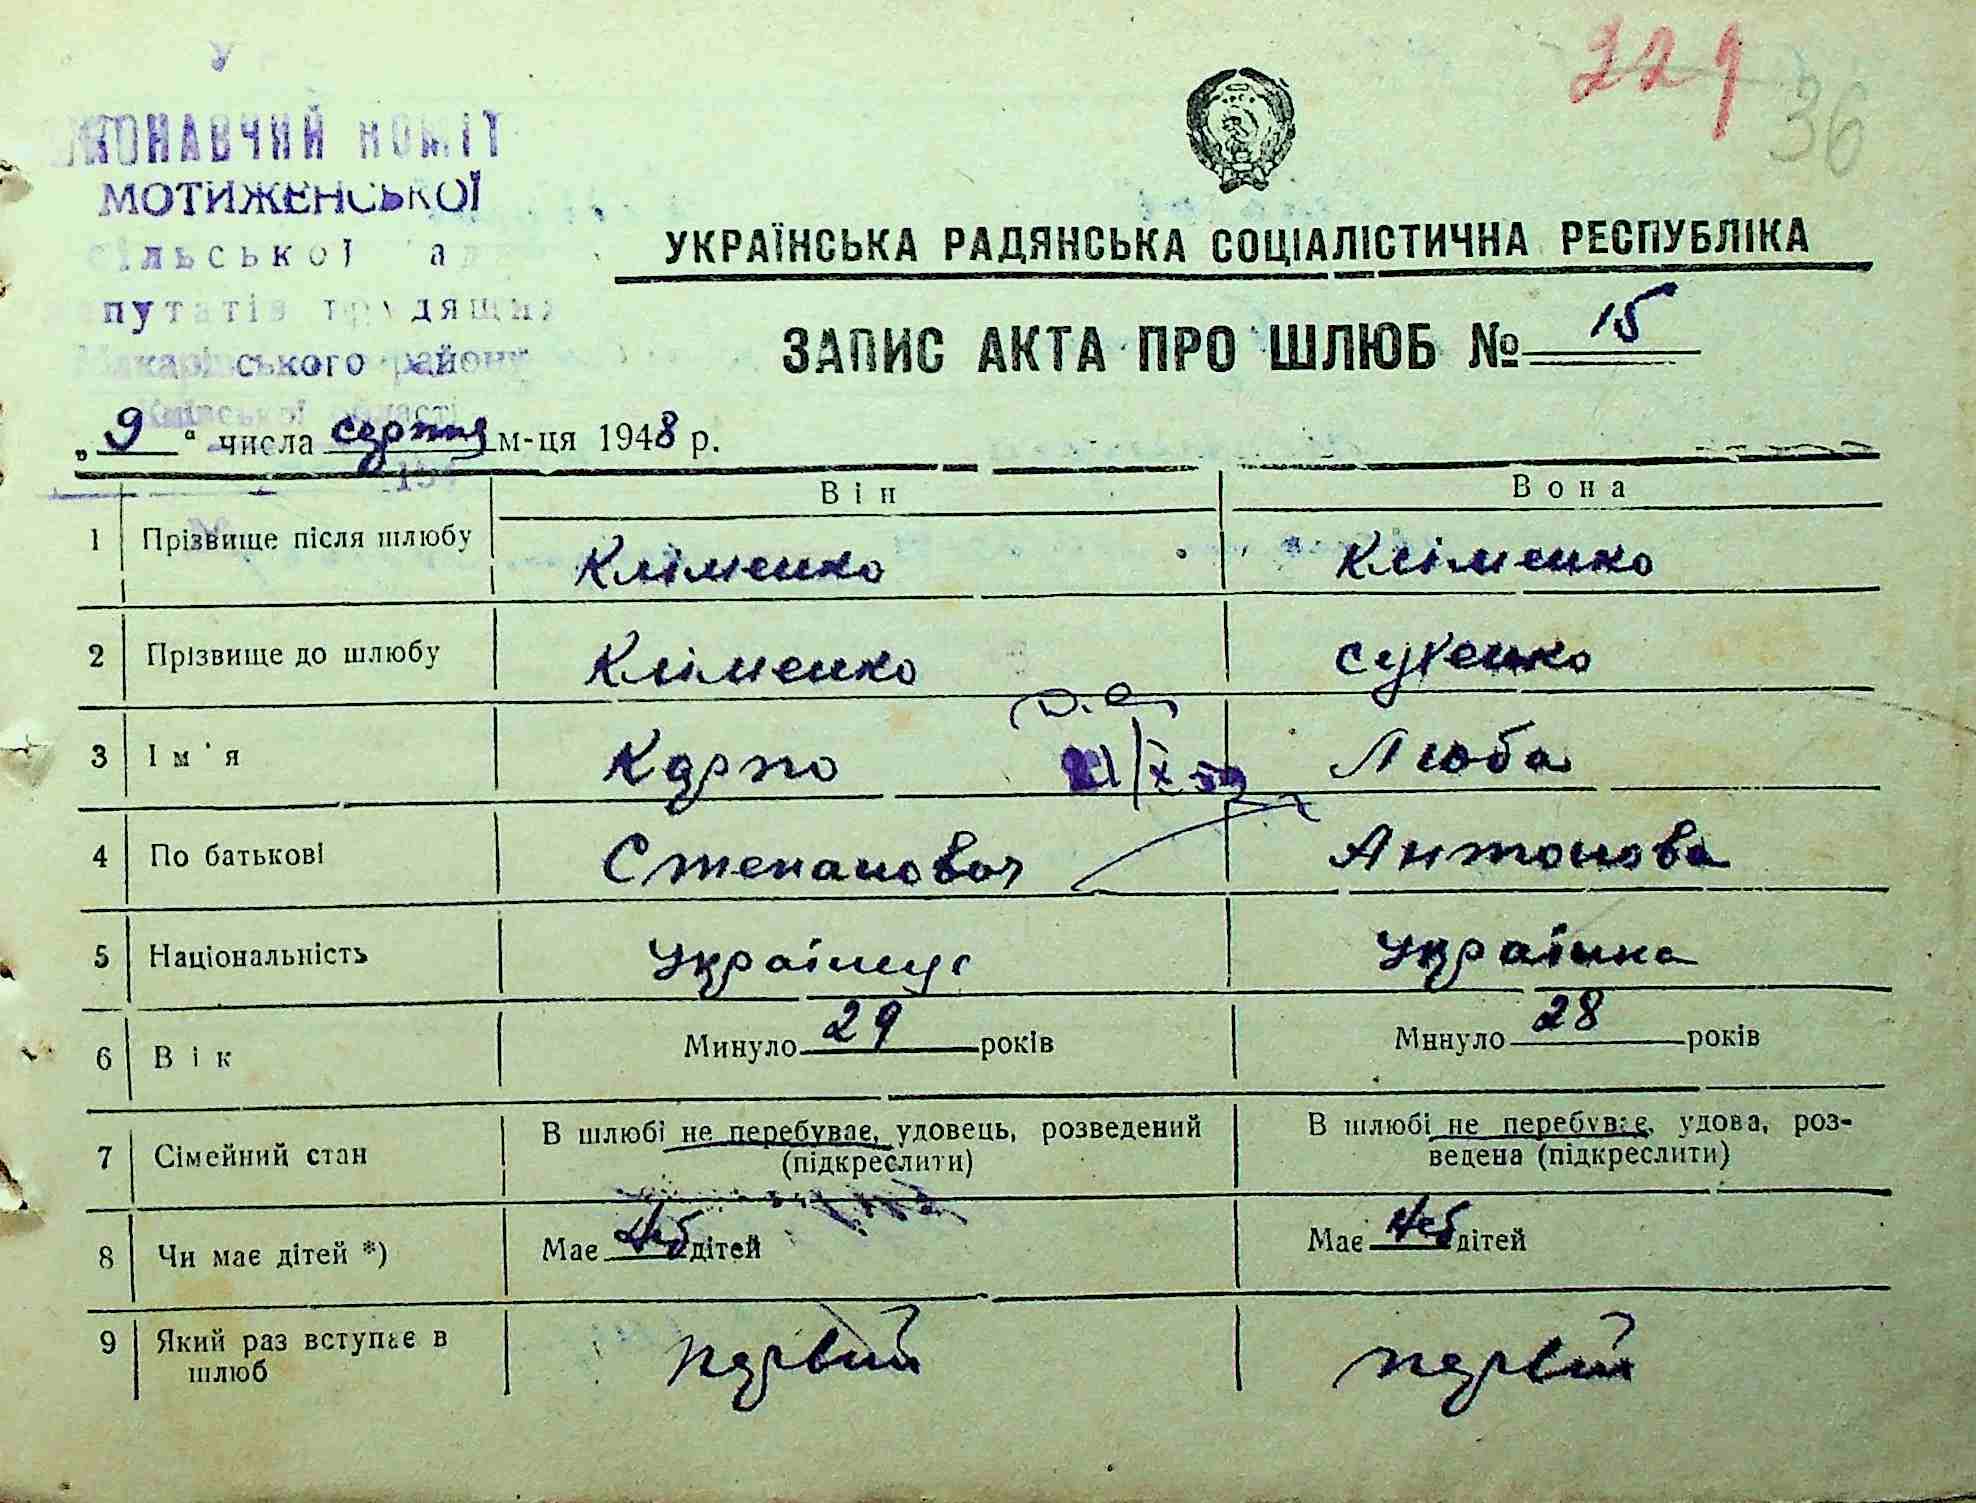 229
36
ВИКОНАВЧИЙ КОМІТ
МОТИЖЕНСЬКОЇ
сільської ради
депутатів трудящих
Макарівського району
Київської області
УКРАЇНСЬКА РАДЯНСЬКА СОЦІАЛІСТИЧНА РЕСПУБЛІКА
ЗАПИС АКТА ПРО ШЛЮБ № 15
„9“ числа серпня м-ця 1948 р.
Він Вона
1 Прізвище після шлюбу Кліменко Кліменко
2 Прізвище до шлюбу Кліменко Сукенко
3 Ім'я Карпо Люба
4 По батькові Степанович Антонова
5 Національність Українус Українка
6 Вік Минуло 29 років Минуло 28 років
7 Сімейний стан В шлюбі не перебуває, удовець, розведений (підкреслити) В шлюбі не перебуває, удова, розведена (підкреслити)
8 Чи має дітей *) Має дітей Має дітей
9 Який раз вступає в шлюб первий первий